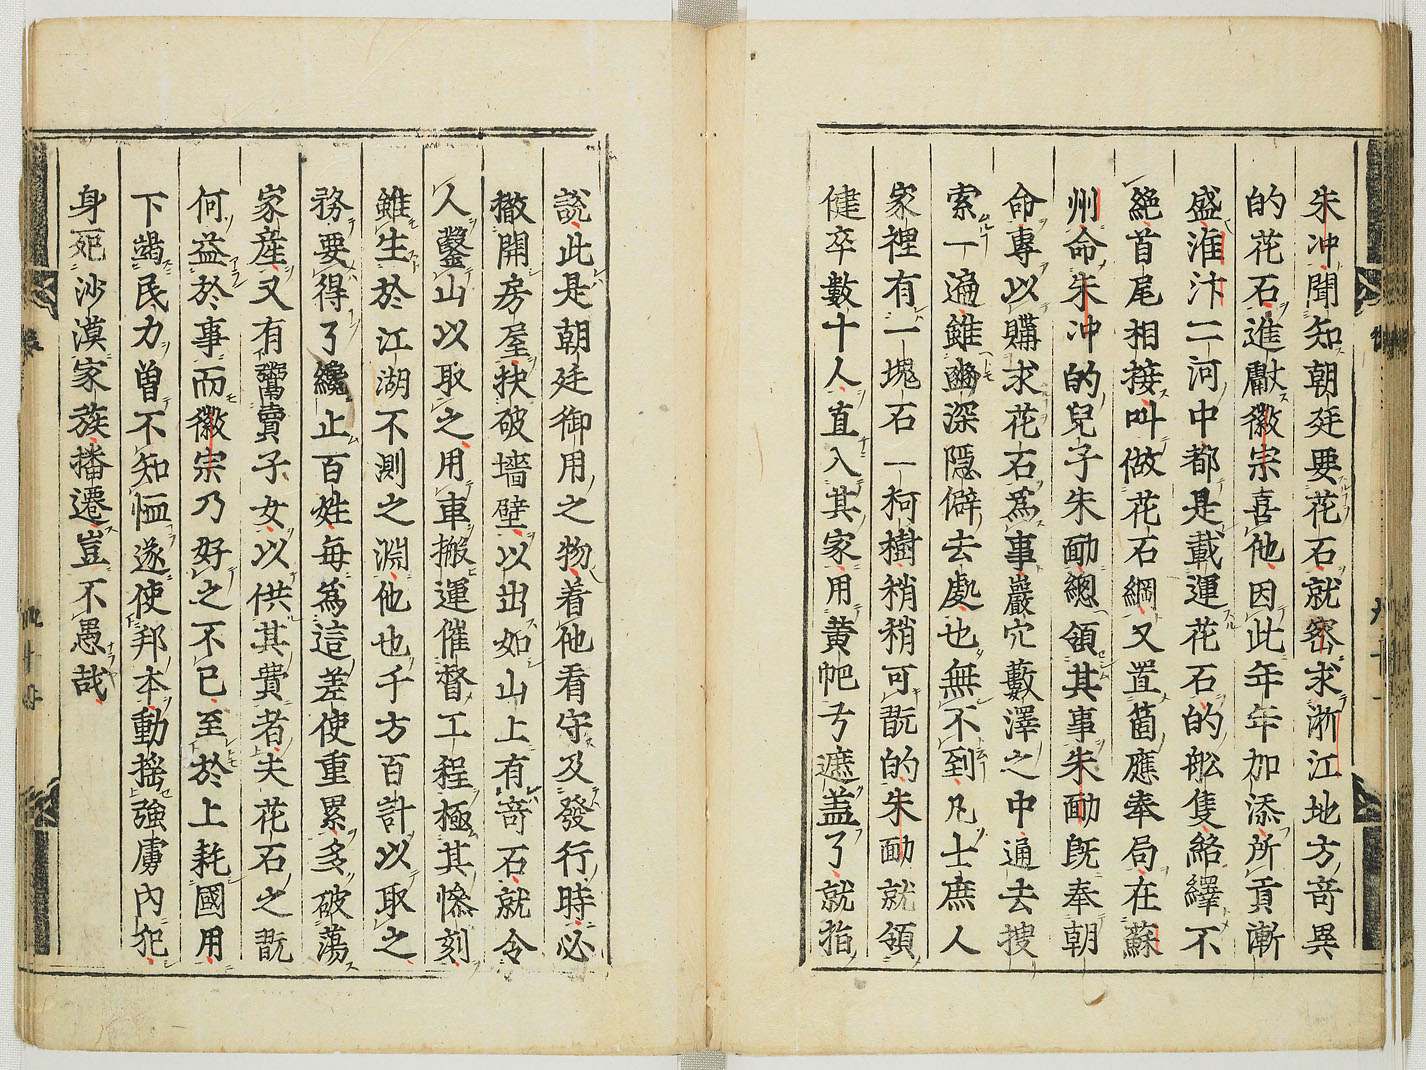 朱冲聞知朝廷要花石就密求浙江地方竒異
的花石進獻徽宗喜他因此年年加添所貢漸
盛淮汴二河中都是載運花石的舩隻絡繹不
絶首尾相接叫做花石綱又置箇應奉局在蘇
州命朱冲的兒子朱勔總領其事朱勔旣奉朝
命專以購求花石爲事巖穴藪澤之中通去搜
索一遍雖幽深隱僻去處也無不到凡士庶人
家裡有一塊石一柯樹稍稍可翫的朱勔就領
健卒數十人直入其家用黄帊兮遮盖了就指
說此是朝廷御用之物着他看守及發行時必
撤開房屋抉破墻壁以出如山上有竒石就令
人鑿山以取之用車搬運催督工程極其慘刻
雖生於江湖不測之淵他也千方百計以取之
務要得了纔止百姓每爲這差使重累多破蕩
家產又有鬻賣子女以供其費者夫花石之翫
何益於事而徽宗乃好之不已至於上耗國用
下竭民力曽不知恤遂使邦本動揺強虜內犯
身死沙漠家族播遷豈不愚哉